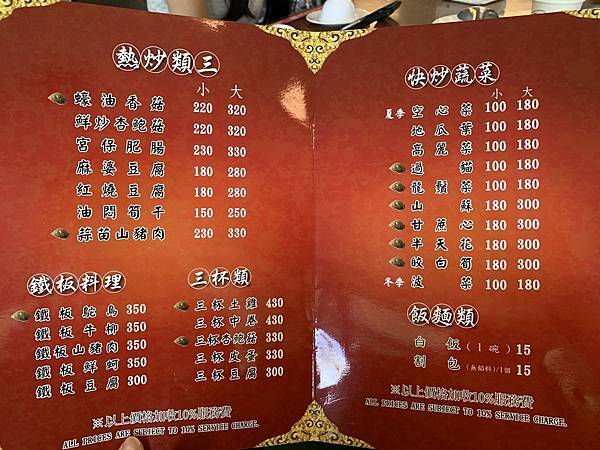 熱炒類三
小 大
蠔油香菇 220 320
鮮炒杏鮑菇 220 320
宮保肥腸 230 330
麻婆豆腐 180 280
紅燒豆腐 180 280
油悶筍干 150 250
蒜苗山豬肉 230 330
鐵板料理
鐵板鴕鳥 350
鐵板牛柳 350
鐵板山豬肉 350
鐵板鮮蚵 350
鐵板豆腐 300
三杯類
三杯土雞 430
三杯中卷 430
三杯杏鮑菇 330
三杯皮蛋 330
三杯豆腐 300
※以上價格加收10%服務費
ALL PRICES ARE SUBJECT TO 10% SERVICE CHARGE.
快炒蔬菜
小 大
夏季 空心菜 100 180
地瓜葉 100 180
高麗菜 100 180
過貓 100 180
龍鬚菜 100 180
山蘇 180 300
甘蔗心 180 300
半天花 180 300
皎白筍 180 300
冬季 菠菜 100 180
飯麵類
白飯(1碗) 15
割包(無餡料)/1個 15
※以上價格加收10%服務費
ALL PRICES ARE SUBJECT TO 10% SERVICE CHARGE.